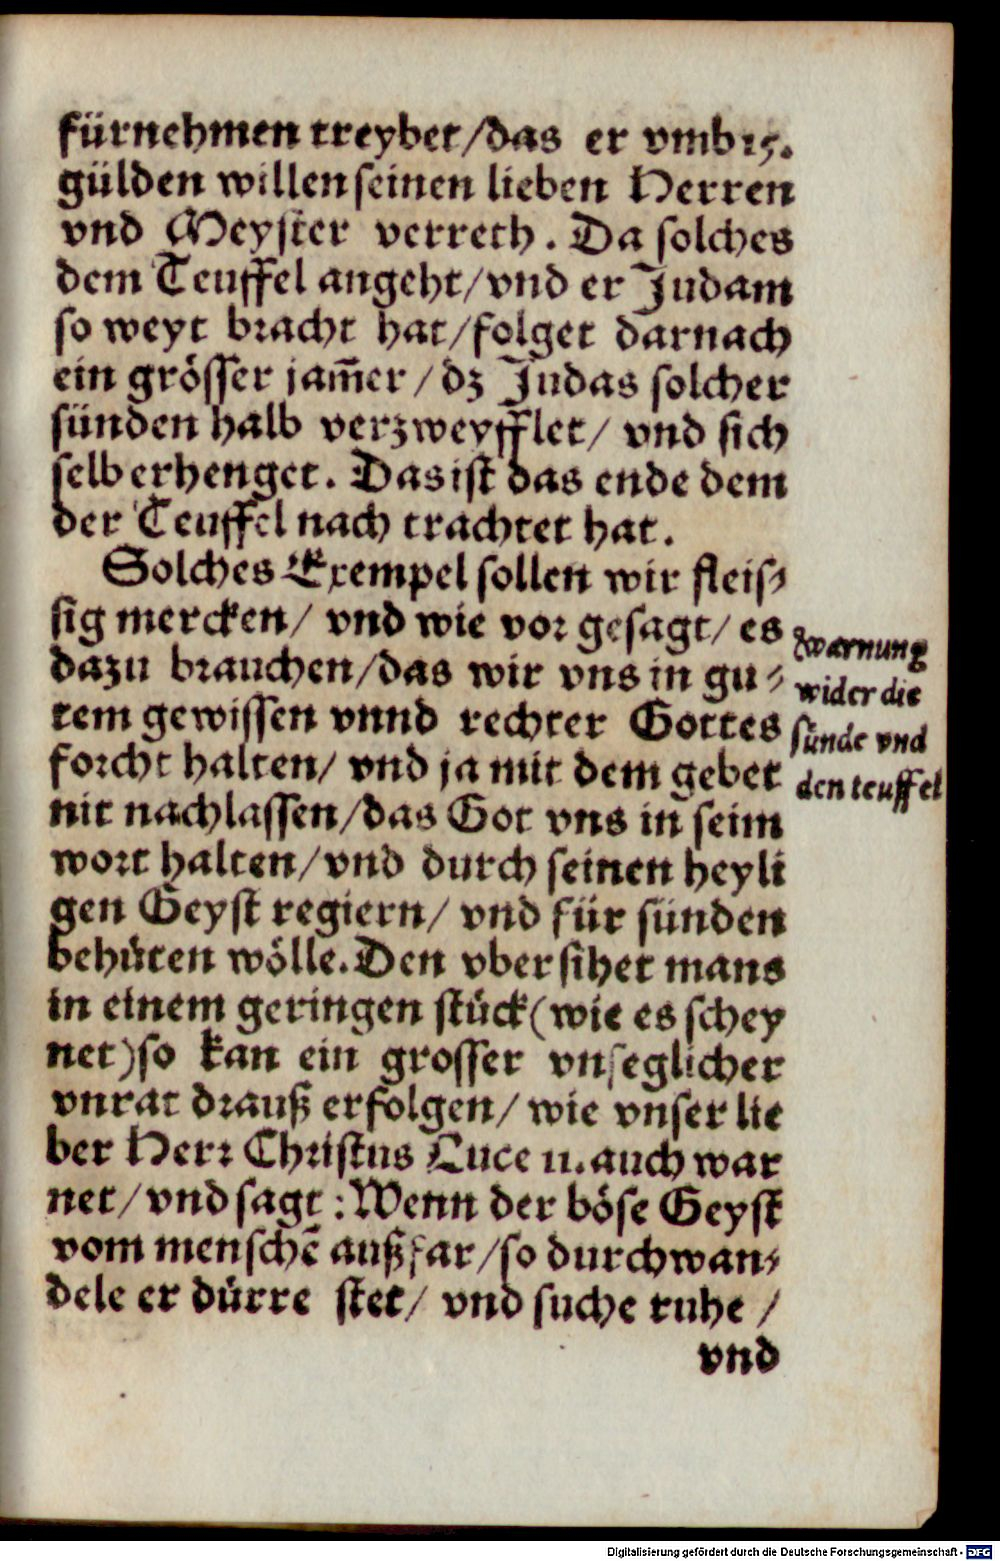 fürnehmen treybet/das er vmb 15.
gülden willen seinen lieben Herren
vnd Meyster verreth. Da solches
dem Teuffel angeht/vnd er Judam
so weyt bracht hat/folget darnach
ein grösser jam̃er/dz Judas solcher
sünden halb verzweyfflet/ vnd sich
selb erhenget. Das ist das ende dem
der Teuffel nach trachtet hat.
Solches Exempel sollen wir fleis⸗
sig mercken/ vnd wie vor gesagt/ es
dazu brauchen/das wir vns in gu⸗
tem gewissen vnnd rechter Gottes
forcht halten/ vnd ja mit dem gebet
nit nachlassen/das Got vns in seim
wort halten/vnd durch seinen heyli
gen Geyst regiern/ vnd für sünden
behüten wölle. Den vbersihet mans
in einem geringen stück (wie es schey
net) so kan ein grosser vnseglicher
vnrat drauß erfolgen/ wie vnser lie
ber Herr Christus Luce 11. auch war
net/vnd sagt: Wenn der böse Geyst
vom menschē außfar/so durchwan⸗
dele er dürre stet/ vnd suche ruhe/
vnd
Warnung
wider die
sünde vnd
den teuffel
Digitalisierung gefördert durch die Deutsche Forschungsgemeinschaft - DFG